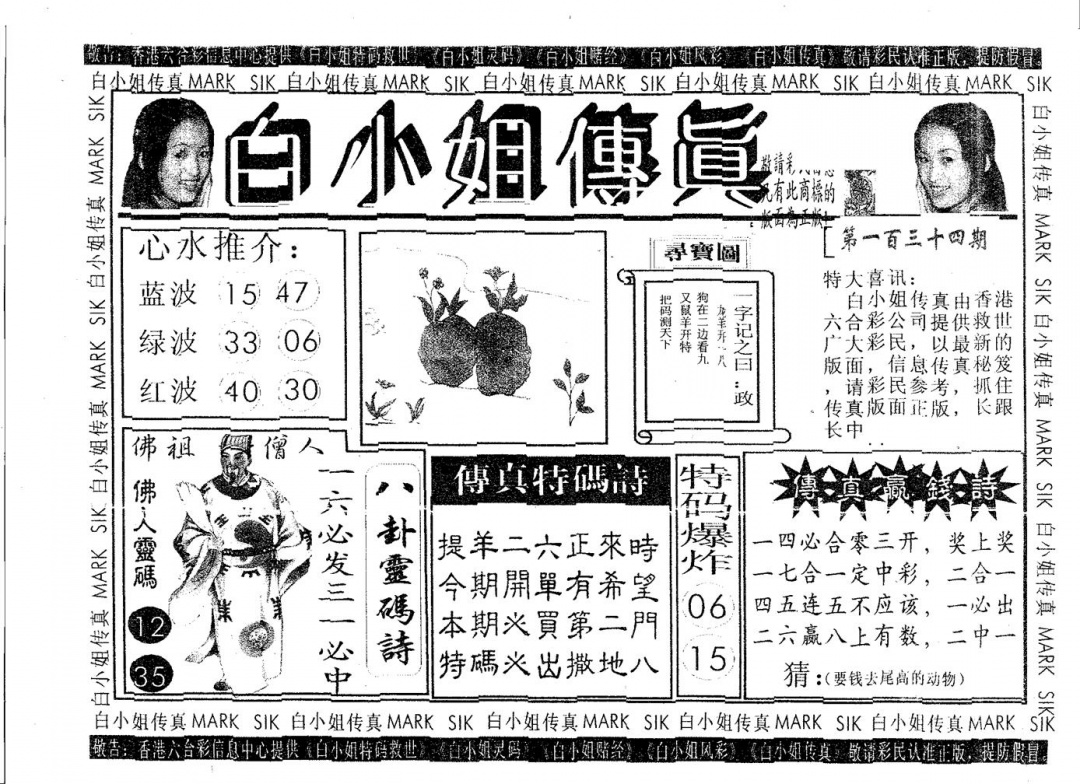 敬告：香港六合彩信息中心提供《白小姐特码救世》《白小姐灵码》《白小姐赌经》《白小姐风彩》《白小姐传真》敬请彩民认准正版，提防假冒
白小姐传真 MARK SIK 白小姐传真 MARK SIK 白小姐传真 MARK SIK 白小姐传真 MARK SIK 白小姐传真 MARK SIK
白小姐传真 MARK SIK 白小姐传真 MARK SIK 白小姐传真 MARK SIK
白小姐傳眞
敬請彩民
凡有此商標的
版面為正版
第一百三十四期
心水推介：
蓝波 15 47
绿波 33 06
红波 40 30
尋寶圖
一字记之曰：政
龙羊开一八
狗在二边看九
又鼠羊开特
把码测天下
特大喜讯：
白小姐传真由香港
六合彩公司提供救世
广大彩民，以最新的
版面，信息传真秘笈
，请彩民参考，抓住
传真版面正版，长跟
长中
佛祖 僧人
佛人靈碼
12
35
一六必发三一必中
八卦靈碼詩
傳真特碼詩
提羊二六正來時
今期開單有希望
本期火買第二門
特碼火出撒地八
特码爆炸
06
15
傳真贏錢詩
一四必合零三开，奖上奖
一七合一定中彩，二合一
四五连五不应该，一必出
二六赢八上有数，二中一
猜：(要钱去尾高的动物)
白小姐传真 MARK SIK 白小姐传真 MARK SIK 白小姐传真 MARK SIK
白小姐传真 MARK SIK 白小姐传真 MARK SIK 白小姐传真 MARK SIK 白小姐传真 MARK SIK 白小姐传真 MARK SIK
敬告：香港六合彩信息中心提供《白小姐特码救世》《白小姐灵码》《白小姐赌经》《白小姐风彩》《白小姐传真》敬请彩民认准正版，提防假冒